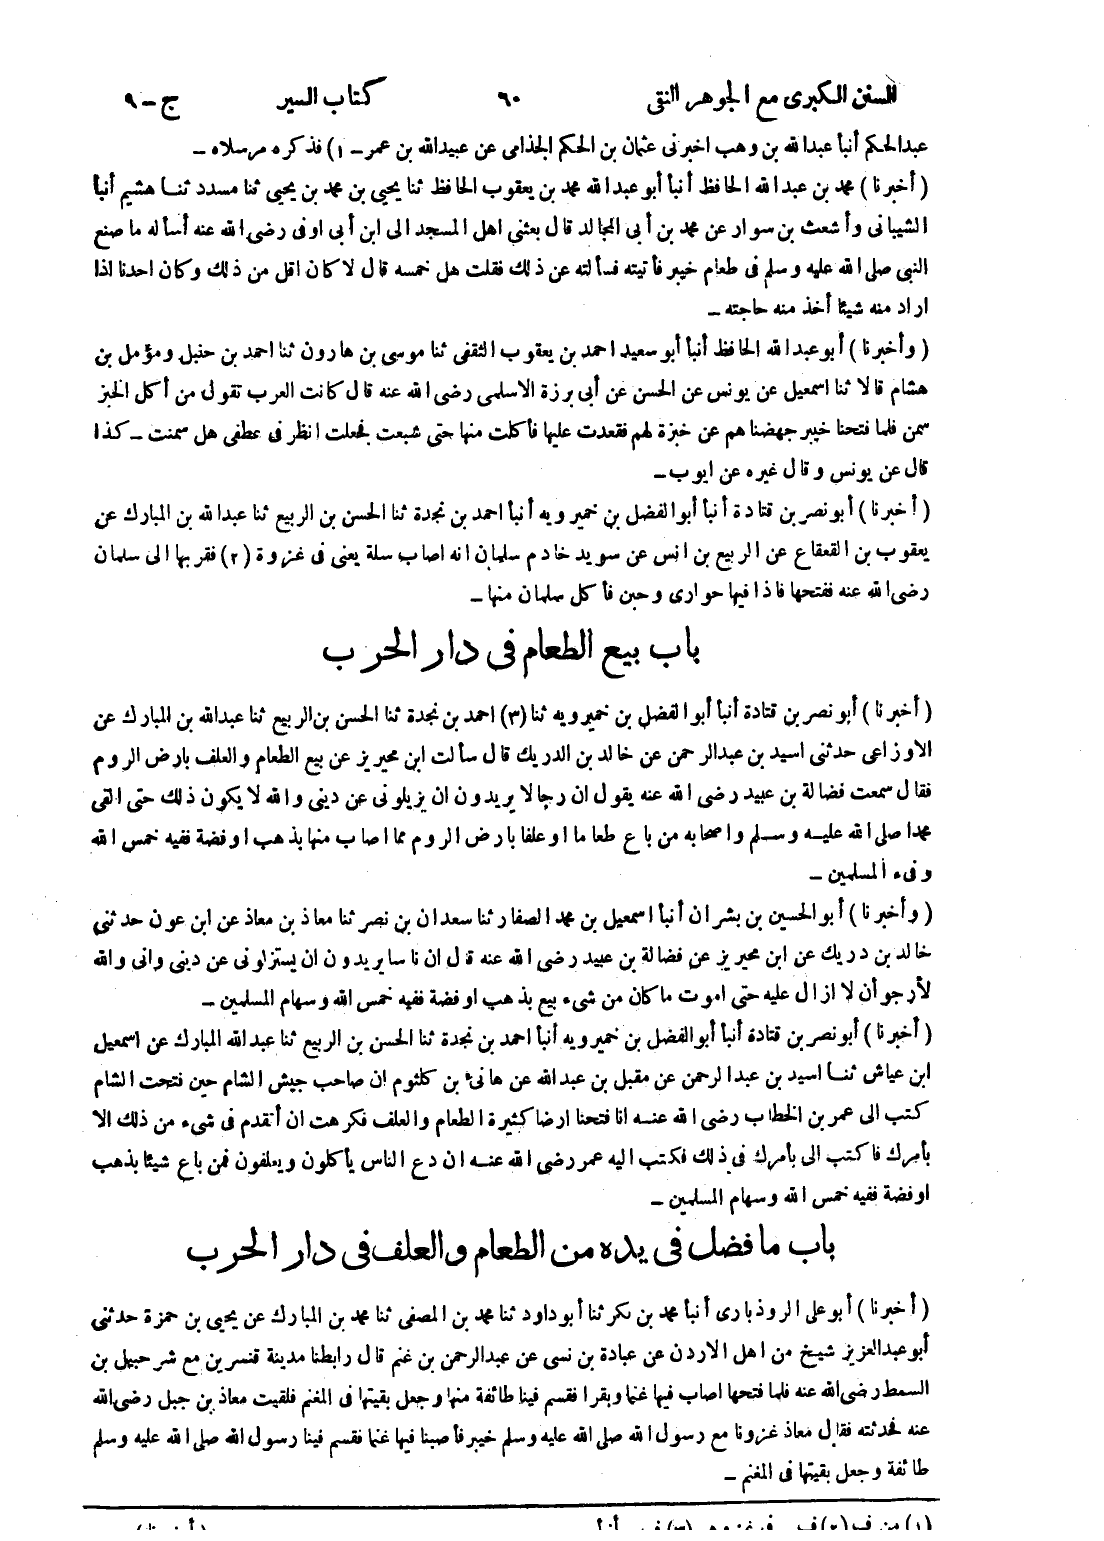 السنن الكبرى مع الجوهر النقى ٦٠ كتاب السير ج - ٩
عبدالحكم أنبأ عبدالله بن وهب اخبرنى عثمان بن الحكم الجذامى عن عبيدالله بن عمر - ١) فذكره مرسلاه -
( أخبرنا ) محمد بن عبدالله الحافظ أنبأ أبو عبدالله محمد بن يعقوب الحافظ ثنا يحيى بن محمد بن يحيى ثنا مسدد ثنا هشيم أنبأ
الشيبانى وأشعث بن سوار عن محمد بن أبى المجالد قال بعثنى اهل المسجد الى ابن أبى اوفى رضى الله عنه أسأله ما صنع
النبى صلى الله عليه وسلم فى طعام خيبر فأتيته فسألته عن ذلك فقلت هل خمسه قال لا كان اقل من ذلك وكان احدنا اذا
اراد منه شيئا أخذ منه حاجته -
( وأخبرنا ) أبو عبدالله الحافظ أنبأ أبو سعيد احمد بن يعقوب الثقفى ثنا موسى بن هارون ثنا احمد بن حنبل ومؤمل بن
هشام قالا ثنا اسمعيل عن يونس عن الحسن عن أبى برزة الاسلمى رضى الله عنه قال كانت العرب تقول من أكل الخبز
سمن فلما فتحنا خيبر جهضناهم عن خبزة لهم فقعدت عليها فأكلت منها حتى شبعت فجعلت انظر فى عطفى هل سمنت - كذا
قال عن يونس وقال غيره عن ايوب -
( أخبرنا ) أبو نصر بن قتادة أنبأ أبو الفضل بن خميرويه أنبأ احمد بن نجدة ثنا الحسن بن الربيع ثنا عبدالله بن المبارك عن
يعقوب بن القعقاع عن الربيع بن انس عن سويد خادم سلمان انه اصاب سلة يعنى فى غزوة (٢) فقربها الى سلمان
رضى الله عنه ففتحها فاذا فيها حوارى وجبن فأكل سلمان منها -
باب بيع الطعام فى دار الحرب
( أخبرنا ) أبو نصر بن قتادة أنبأ أبو الفضل بن خميرويه ثنا (٣) احمد بن نجدة ثنا الحسن بن الربيع ثنا عبدالله بن المبارك عن
الاوزاعى حدثنى اسيد بن عبدالرحمن عن خالد بن الدريك قال سألت ابن محيريز عن بيع الطعام والعلف بارض الروم
فقال سمعت فضالة بن عبيد رضى الله عنه يقول ان رجالا يريدون ان يزيلونى عن دينى والله لا يكون ذلك حتى القى
محمدا صلى الله عليه وسلم واصحابه من باع طعاما او علفا بارض الروم مما اصاب منها بذهب او فضة ففيه خمس الله
وفىء المسلمين -
( وأخبرنا ) أبو الحسين بن بشران أنبأ اسمعيل بن محمد الصفار ثنا سعدان بن نصر ثنا معاذ بن معاذ عن ابن عون حدثنى
خالد بن دريك عن ابن محيريز عن فضالة بن عبيد رضى الله عنه قال ان ناسا يريدون ان يستزلونى عن دينى وانى والله
لأرجو أن لا ازال عليه حتى اموت ما كان من شىء بيع بذهب او فضة ففيه خمس الله وسهام المسلمين -
( أخبرنا ) أبو نصر بن قتادة أنبأ أبو الفضل بن خميرويه أنبأ احمد بن نجدة ثنا الحسن بن الربيع ثنا عبدالله المبارك عن اسمعيل
ابن عياش ثنا اسيد بن عبدالرحمن عن مقبل بن عبدالله عن هانئ بن كلثوم ان صاحب جيش الشام حين فتحت الشام
كتب الى عمر بن الخطاب رضى الله عنه انا فتحنا ارضا كثيرة الطعام والعلف فكرهت ان أتقدم فى شىء من ذلك الا
بأمرك فاكتب الى بأمرك فى ذلك فكتب اليه عمر رضى الله عنه ان دع الناس يأكلون ويعلفون فمن باع شيئا بذهب
او فضة ففيه خمس الله وسهام المسلمين -
باب ما فضل فى يده من الطعام والعلف فى دار الحرب
( أخبرنا ) أبو على الروذبارى أنبأ محمد بن بكر ثنا أبو داود ثنا محمد بن المصفى ثنا محمد بن المبارك عن يحيى بن حمزة حدثنى
أبو عبدالعزيز شيخ من اهل الاردن عن عبادة بن نسى عن عبدالرحمن بن غنم قال رابطنا مدينة قنسرين مع شرحبيل بن
السمط رضى الله عنه فلما فتحها اصاب فيها غنما وبقرا فقسم فينا طائفة منها وجعل بقيتها فى المغنم فلقيت معاذ بن جبل رضى الله
عنه فحدثته فقال معاذ غزونا مع رسول الله صلى الله عليه وسلم خيبر فأصبنا فيها غنما فقسم فينا رسول الله صلى الله عليه وسلم
طائفة وجعل بقيتها فى المغنم -